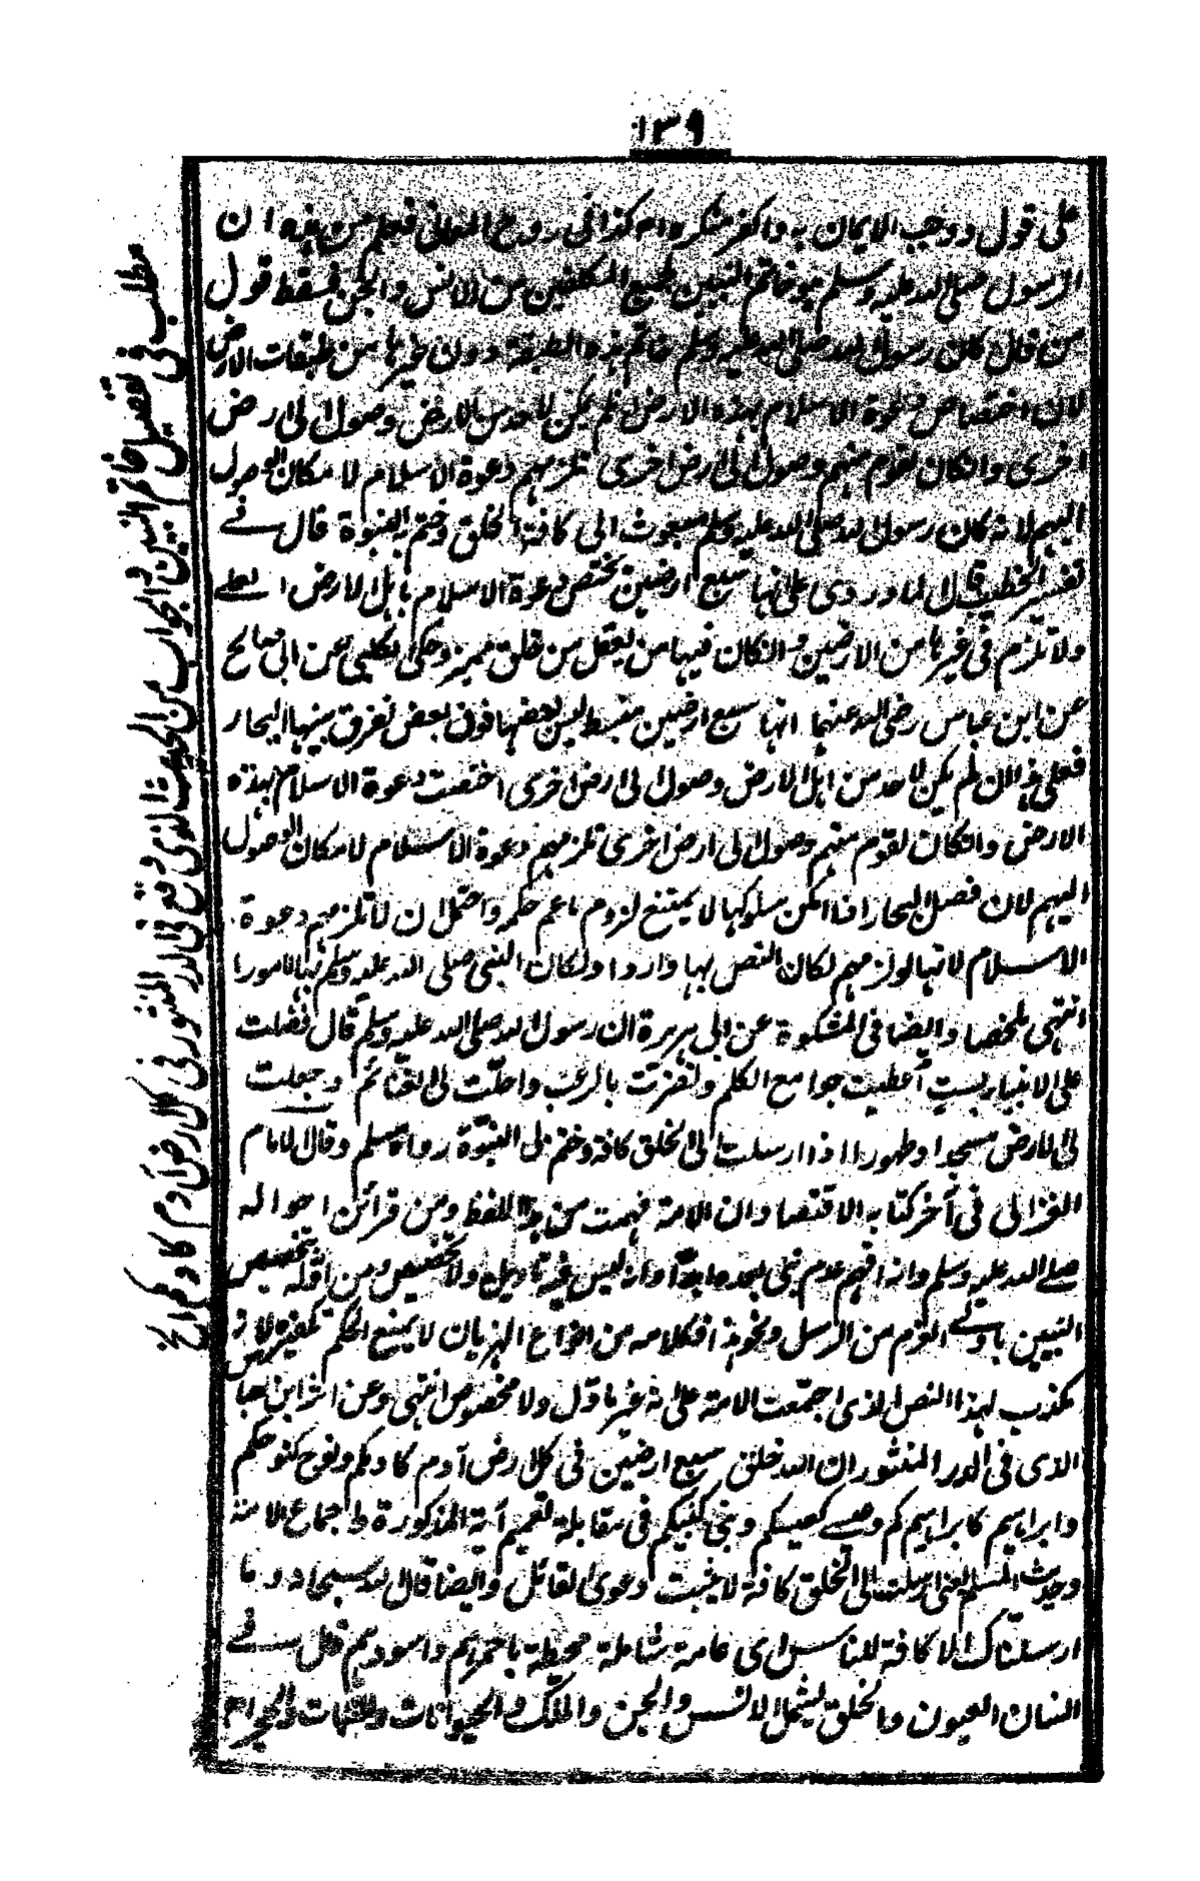 ١٣٩
على قول ووجب الايمان به واكفر منكره اه كذا فى روح المعانى فعلم من هذه ان
الرسول صلى الله عليه وسلم هو خاتم النبيين لجميع المكلفين من الانس والجن فسقط قول
من قال كان رسول الله صلى الله عليه وسلم خاتم هذه الطبقة دون غيرها من طبقات الارض
لان اختصاص دعوة الاسلام بهذه الارض لم يكن لاحد من الارض وصول الى ارض
اخرى وانكان لقوم منهم وصول الى ارض اخرى تلزمهم دعوة الاسلام لامكان الوصول
اليهم لانه كان رسول الله صلى الله عليه وسلم مبعوث الى كافة الخلق وختم به النبوة قال فى
تفسير الخطيب قال الماوردى على انها سبع ارضين تختص دعوة الاسلام باهل الارض العليا
ولا تلزم فى غيرها من الارضين وانكان فيها من يعقل من خلق مميز وحكى الكلبى عن ابى صالح
عن ابن عباس رضى الله عنهما انها سبع ارضين منبسط ليس بعضها فوق بعض تفرق بينها البحار
فعلى هذا ان لم يكن لاحد من اهل الارض وصول الى ارض اخرى اختصت دعوة الاسلام بهذه
الارض وانكان لقوم منهم وصول الى ارض اخرى تلزمهم دعوة الاسلام لامكان الوصول
اليهم لان فصل البحار اذا امكن سلوكها لا يمتنع لزوم ما عم حكمه واحتمل ان لا تلزمهم دعوة
الاسلام لانها لو لزمهم لكان النص بها واردا ولكان النبى صلى الله عليه وسلم بها مامورا
انتهى ملخصا وايضا فى المشكوة عن ابى هريرة ان رسول الله صلى الله عليه وسلم قال فضلت
على الانبياء بست اعطيت جوامع الكلم ونصرت بالرعب واحلت لى الغنائم وجعلت
لى الارض مسجدا وطهورا ارسلت الى الخلق كافة وختم لى النبوة رواه مسلم وقال الامام
الغزالى فى آخر كتابه الاقتصاد ان الامة فهمت من هذا اللفظ ومن قرائن احواله
صلے الله عليه وسلم وانه افهم عدم نبى بعده ابدا وانه ليس فيه تاويل ولا تخصيص ومن اوله بتخصيص
النبيين باولى العزم من الرسل ونحو هذا فكلامه من انواع الهذيان لا يمنع الحكم تكفيره لانه
مكذب لهذا النص الذى اجتمعت الامة على انه غير ماوّل ولا مخصوص انتهى وعن اثر ابن عباس
الذى فى الدر المنثور ان الله خلق سبع ارضين فى كل ارض آدم كادمكم ونوح كنوحكم
وابراهيم كابراهيمكم وعيسے كعيسكم ونبى كنبيكم فى مقابلة تعميم آية المذكورة واجماع الامة
وحديث المسلم اعنى ارسلت الى الخلق كافة لا يثبت دعوى القائل وايضا قال الله سبحانه وما
ارسلناك الا كافة للناس اى عامة شاملة محيطة باحمرهم واسودهم قال فى
انسان العيون والخلق يشمل الانس والجن والملك والحيوانات والنباتات والحجر اه
مطلب فى تفصيل خاتم النبيين والجواب عن الحديث الذى وقع فى الدر المنثور فى كل ارض آدم كادمكم الخ